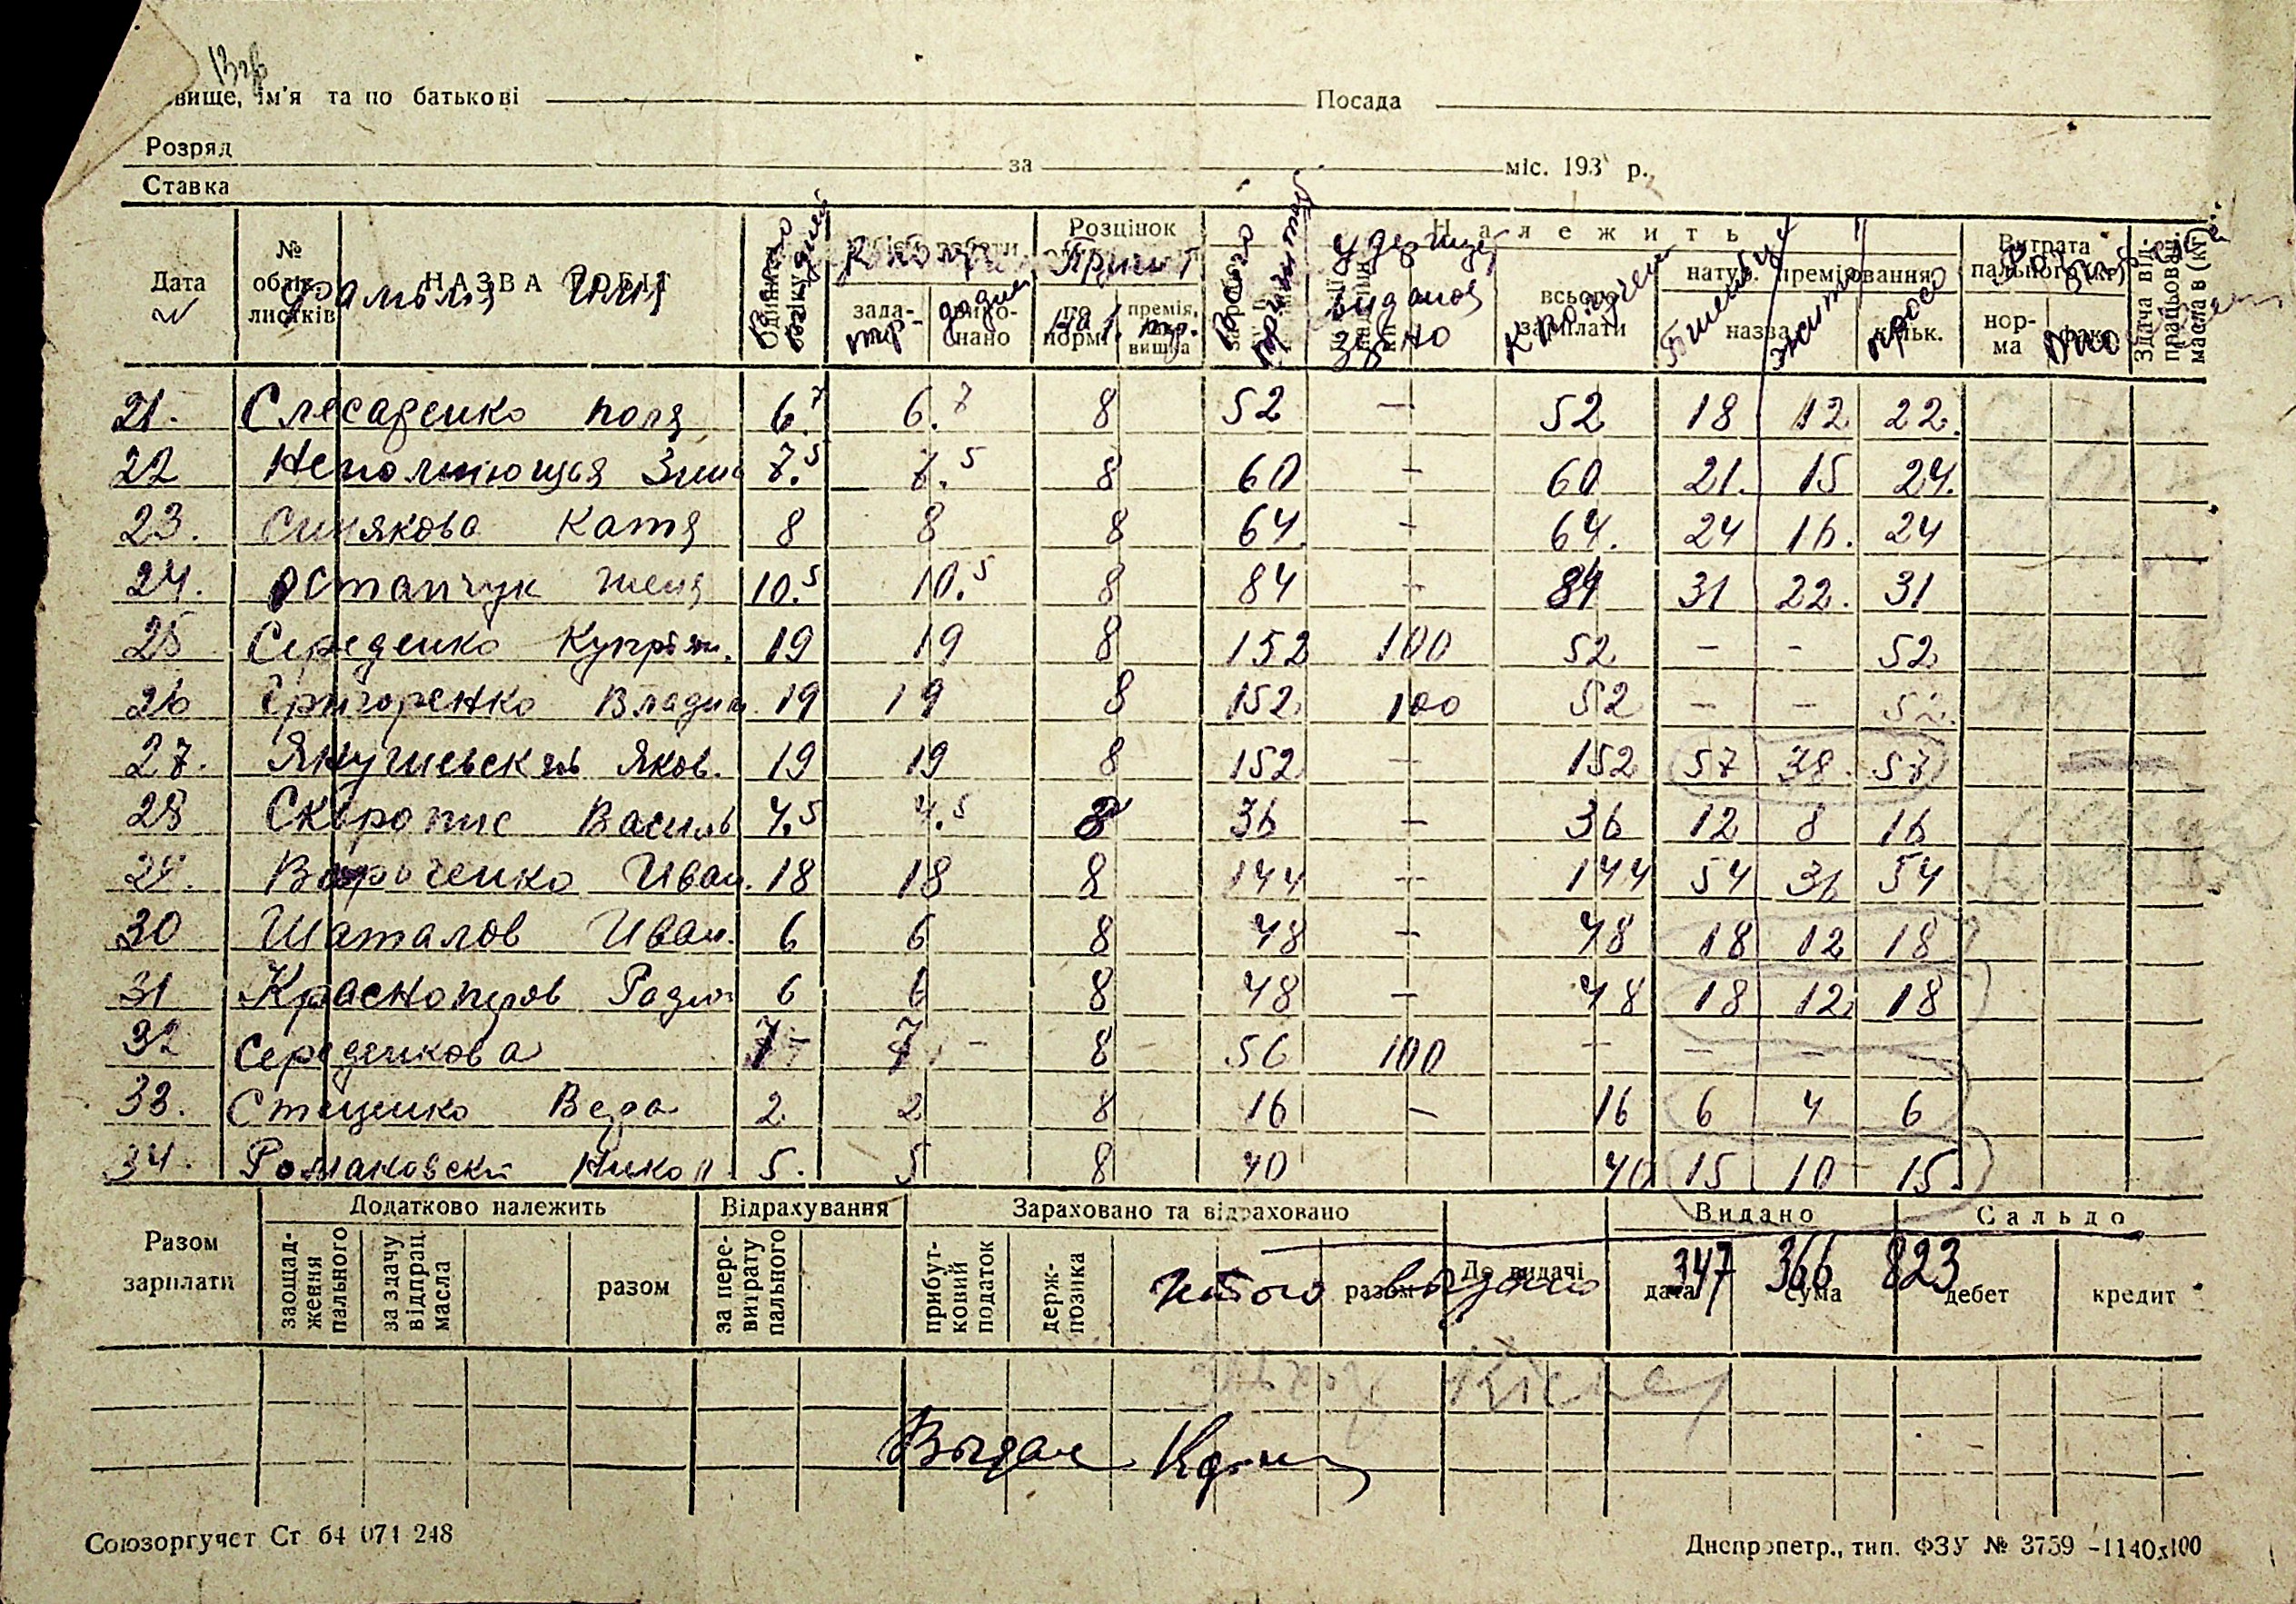 вище, ім'я та по батькові Посада
Розряд за міс. 193 р.
Ставка
Дата № облік. листків НАЗВА РОБІТ Розцінок Належить Витрата пального (кг) Здача від- працьован. масла в (кг)
фамылия Имя удержис
зада- нано по норм. премія, вишка выдано зерно всього зарплати натур. преміювання
к получен Пшеницы жито просо назва кільк. нор- ма факт.
21. Слесаренко Поля 6.7 6.7 8 52 — 52 18 12 22.
22 Неполнiющая Зина 7.5 7.5 8 60 - 60 21. 15 24.
23. Синякова Катя 8 8 8 64. - 64. 24 16. 24
24. Остапчук Женя 10.5 10.5 8 84 - 84 31 22. 31
25 Середенко Куприян. 19 19 8 152 100 52 - - 52
26 Григоренко Владим. 19 19 8 152 100 52 - - 52.
27. Янушевский Яков. 19 19 8 152 — 152 57 38. 57
28 Скоропис Василь 4.5 4.5 8 36 — 36 12 8 16
29. Вороченко Иван. 18 18 8 144 — 144 54 36 54
30 Шаталов Иван. 6 6 8 48 — 48 18 12 18
31 Красноперов Радион 6 6 8 48 — 48 18 12 18
32 Середенкова 7 7 - 8 56 100 — — — —
33. Стеценко Вера 2. 2 8 16 — 16 6 4 6
34. Романовский Никол. 5. 5 8 40 40 15 10 15.
Додатково належить Відрахування Зараховано та відраховано Видано Сальдо
Разом зарплати заощад- ження пального за здачу відпрац. масла разом за пере- витрату пального прибут- ковий податок держ- позика разом До видачі дата сума дебет кредит
Итого выдано 347 366 823
Выдал
Союзоргучет Ст 64 071 248 Днепропетр., тип. ФЗУ № 3759 -1140х100